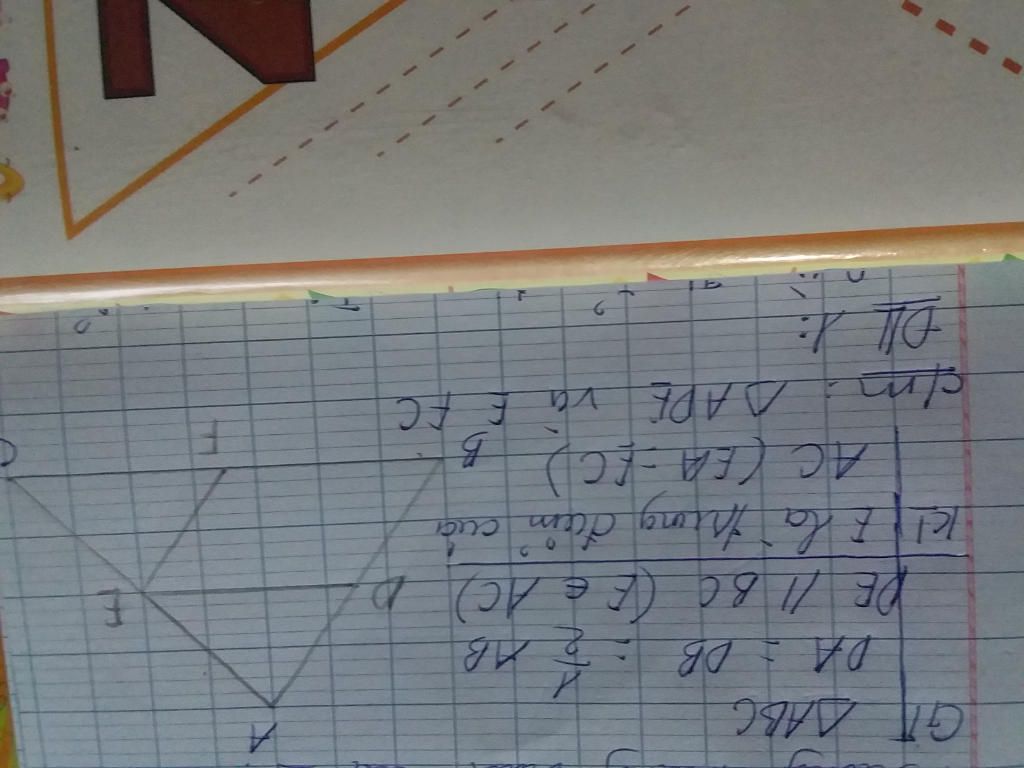 GT ΔABC
DA = DB = 1/2 AB
DE // BC (E ∈ AC)
KL E là trung điểm của
AC (EA = EC)
c/m: ΔADE và EFC
ĐL 1:
A
D
E
B
F
C
N